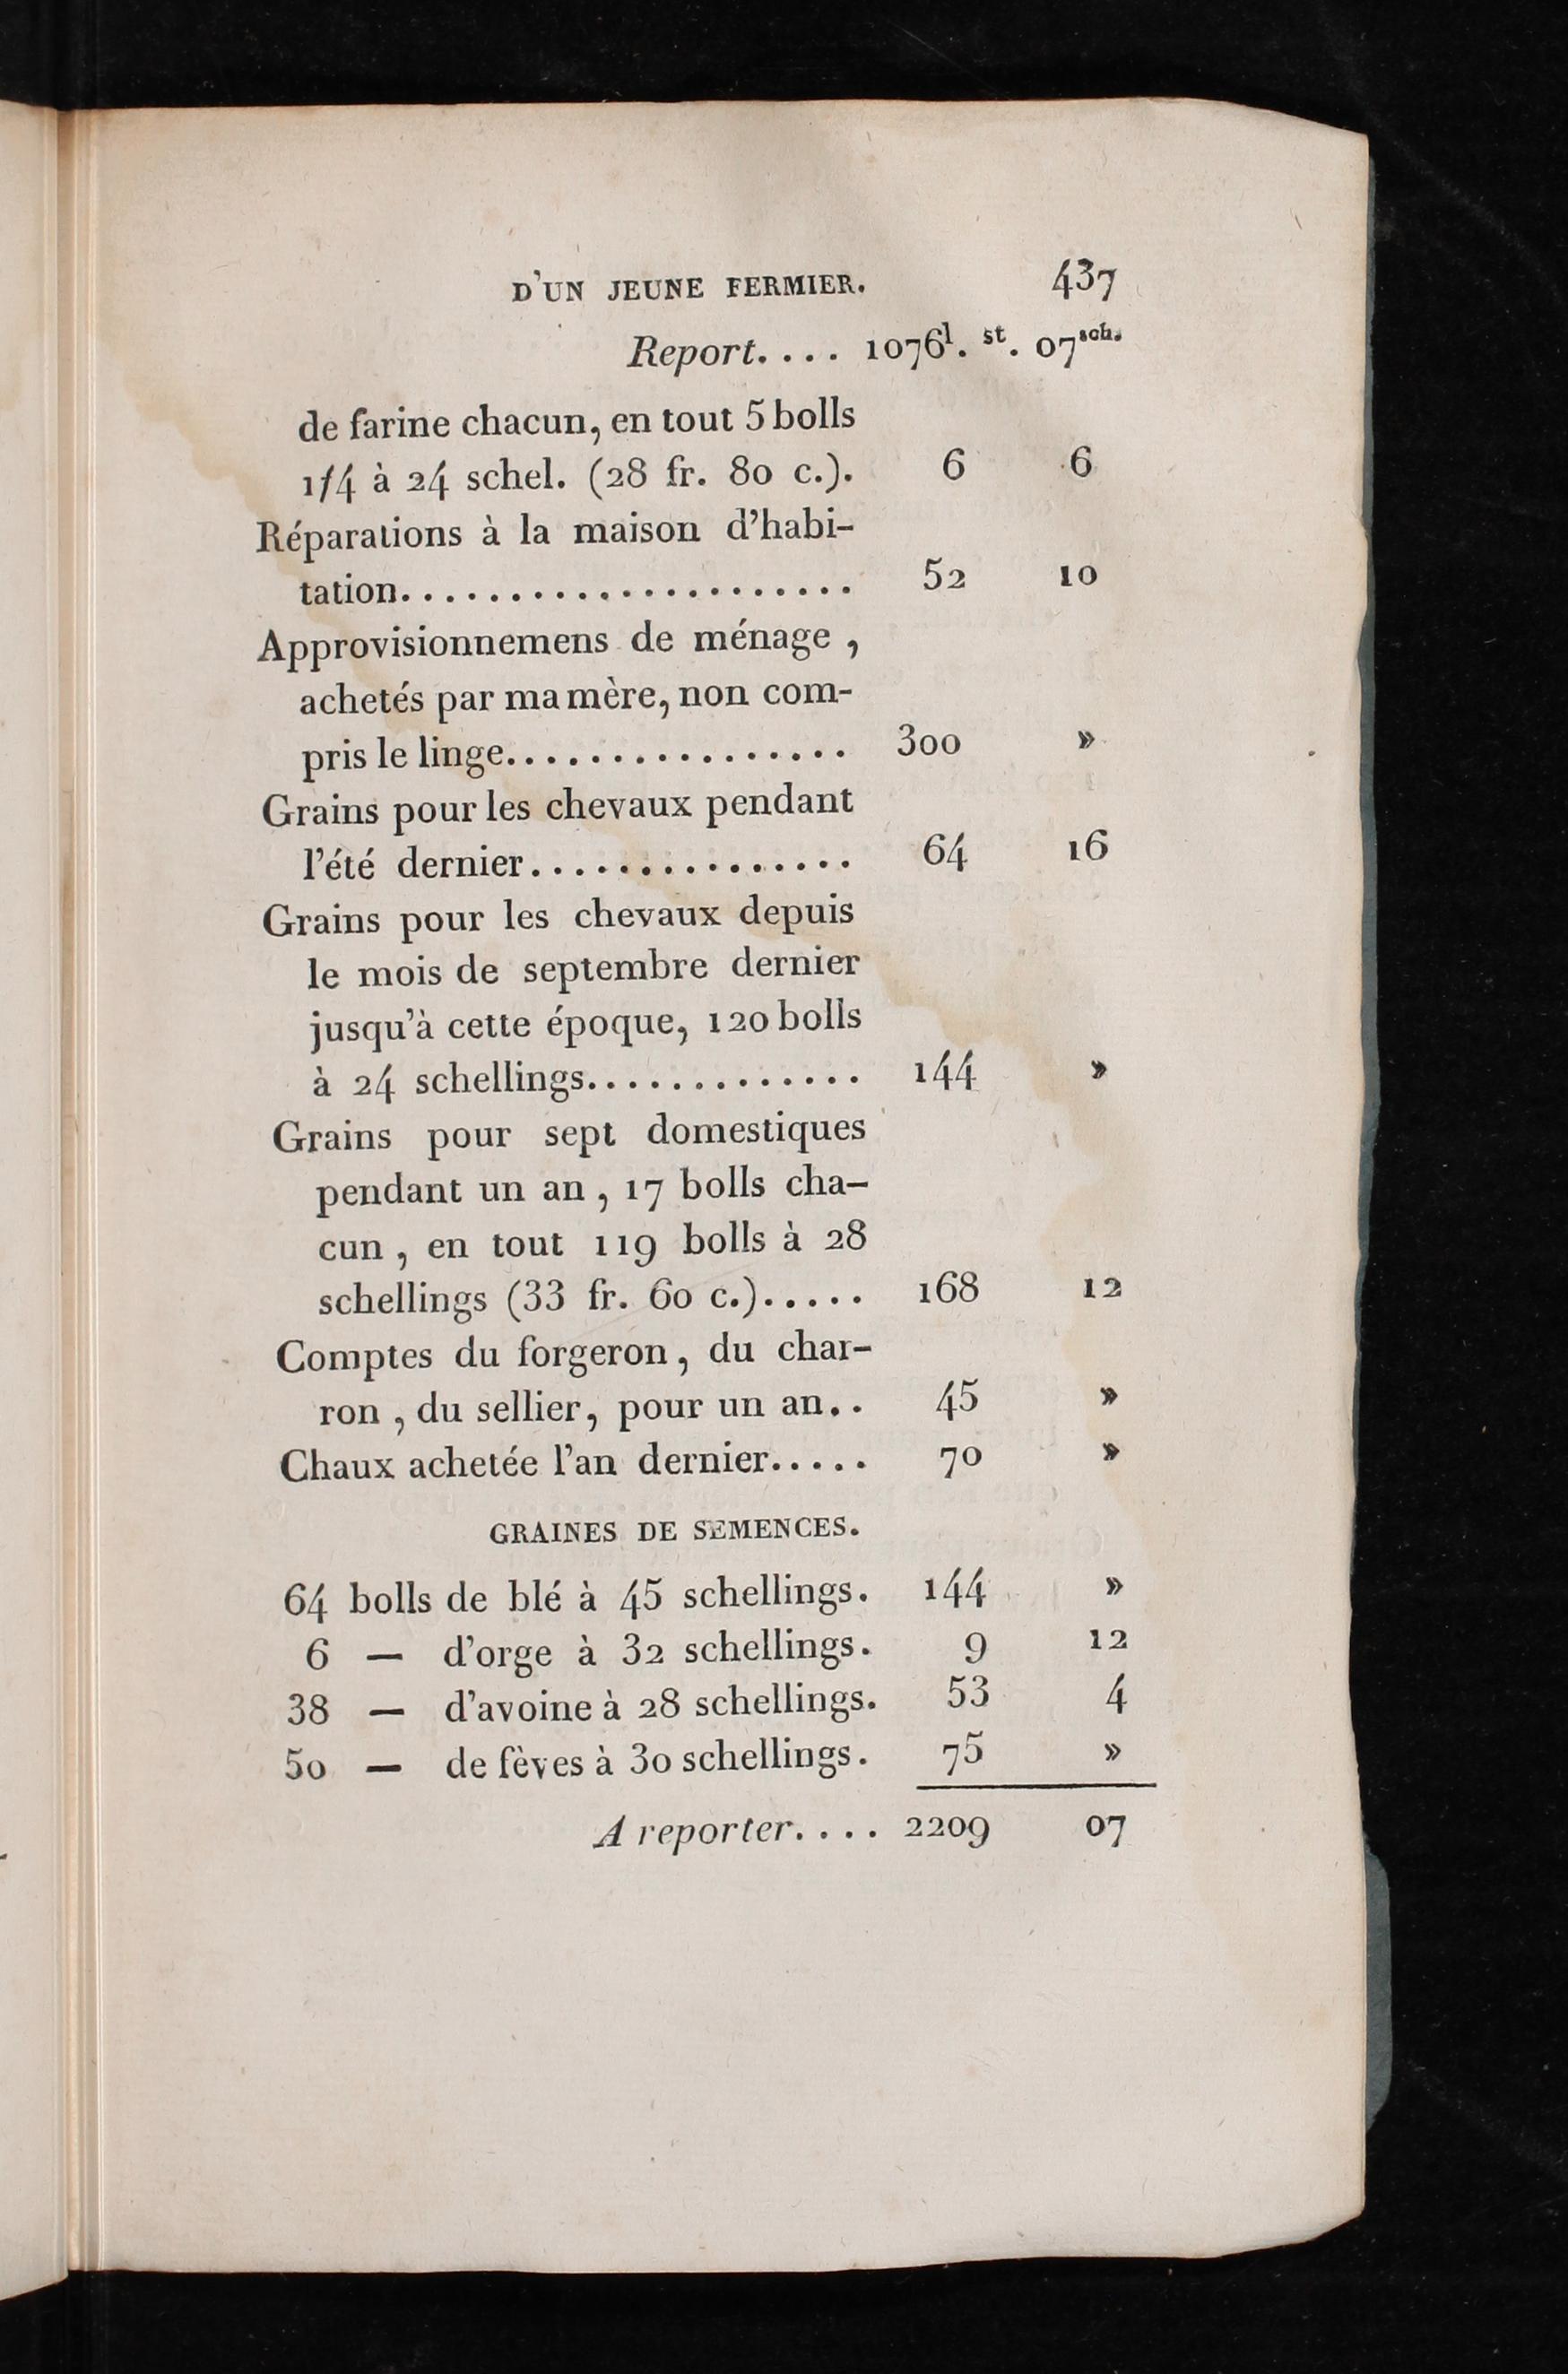 D'UN JEUNE FERMIER. 437
Report.... 1076l. st. 07sch.
de farine chacun, en tout 5 bolls
1/4 à 24 schel. (28 fr. 80 c.). 6 6
Réparations à la maison d'habi-
tation...................... 52 10
Approvisionnemens de ménage,
achetés par ma mère, non com-
pris le linge................. 300 »
Grains pour les chevaux pendant
l'été dernier................ 64 16
Grains pour les chevaux depuis
le mois de septembre dernier
jusqu'à cette époque, 120 bolls
à 24 schellings.............. 144 »
Grains pour sept domestiques
pendant un an, 17 bolls cha-
cun, en tout 119 bolls à 28
schellings (33 fr. 60 c.)..... 168 12
Comptes du forgeron, du char-
ron, du sellier, pour un an.. 45 »
Chaux achetée l'an dernier..... 70 »
GRAINES DE SEMENCES.
64 bolls de blé à 45 schellings. 144 »
6 — d'orge à 32 schellings. 9 12
38 — d'avoine à 28 schellings. 53 4
50 — de fèves à 30 schellings. 75 »
A reporter.... 2209 07